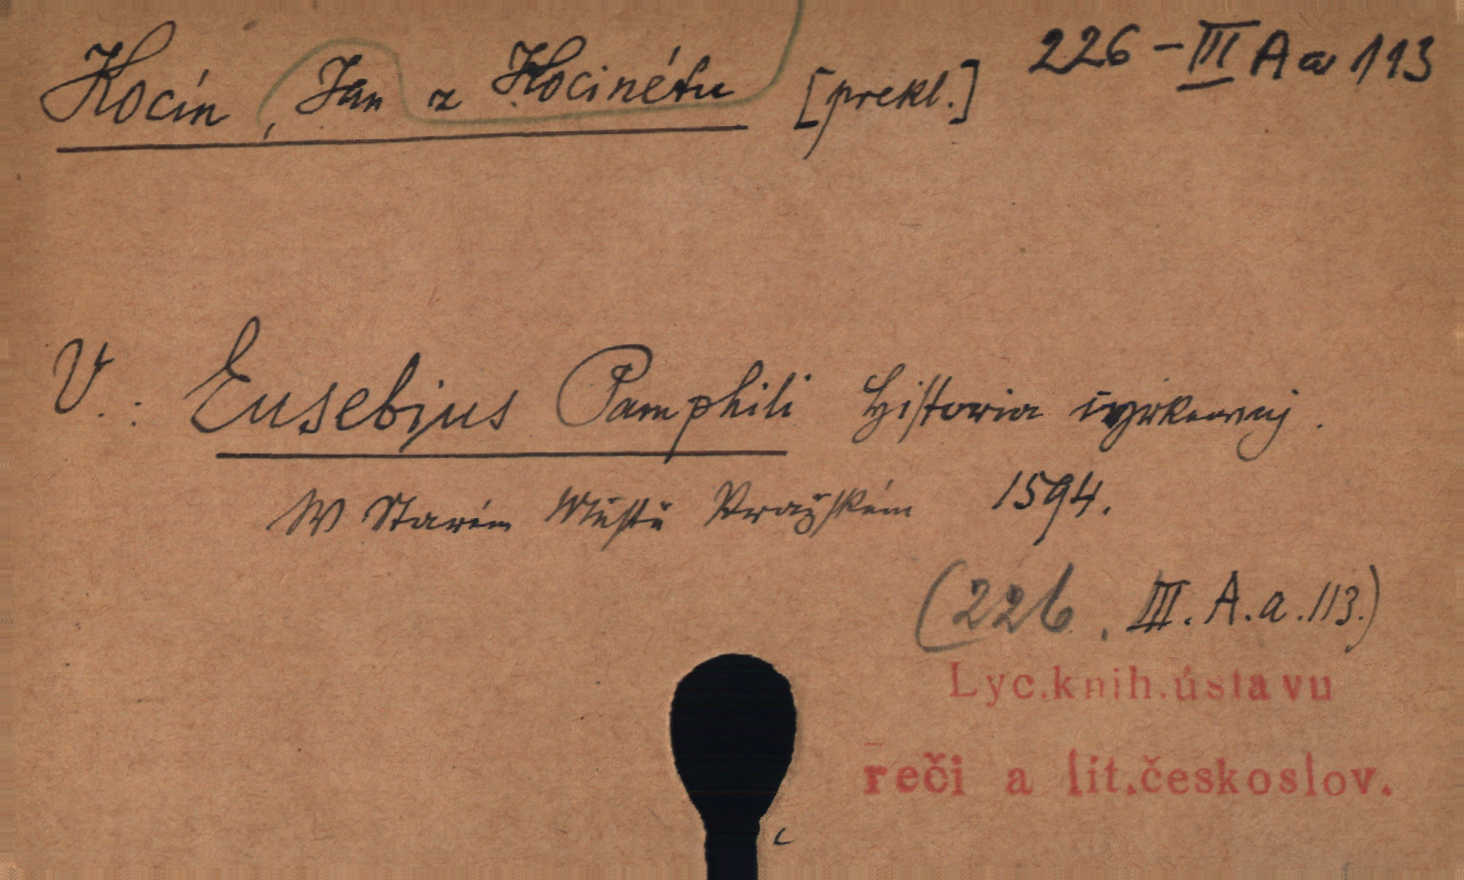 Kocín, Jan z Kocinétu [prekl.] 226-III Aa 113
V.: Eusebius Pamphili Historia cyrkewnj.
W Starém Městě Pražském 1594.
(226. III. A.a.113.)
Lyc.knih.ústavu
reči a lit.českoslov.